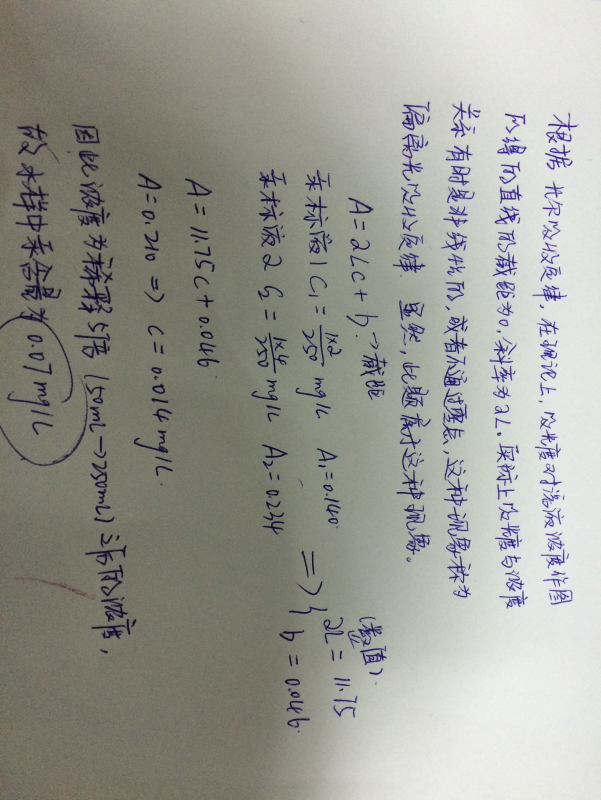 根据比尔吸收定律，在理论上，吸光度对溶液浓度作图
所得的直线的截距为0，斜率为aL。实际上吸光度与浓度
关系有时是非线性的，或者不通过零点，这种现象称为
偏离光吸收定律。显然，此题属于这种现象。
A=aLC+b→截距
汞标液1 C₁=1×2/250 mg/L A₁=0.140
汞标液2 C₂=1×4/250 mg/L A₂=0.234
=> { aL=11.75 (数值)
b=0.046.
A=11.75C+0.046.
A=0.210 => C=0.014mg/L.
因此浓度为稀释5倍 (50mL→250mL) 之后的浓度，
故水样中汞含量为 0.07mg/L